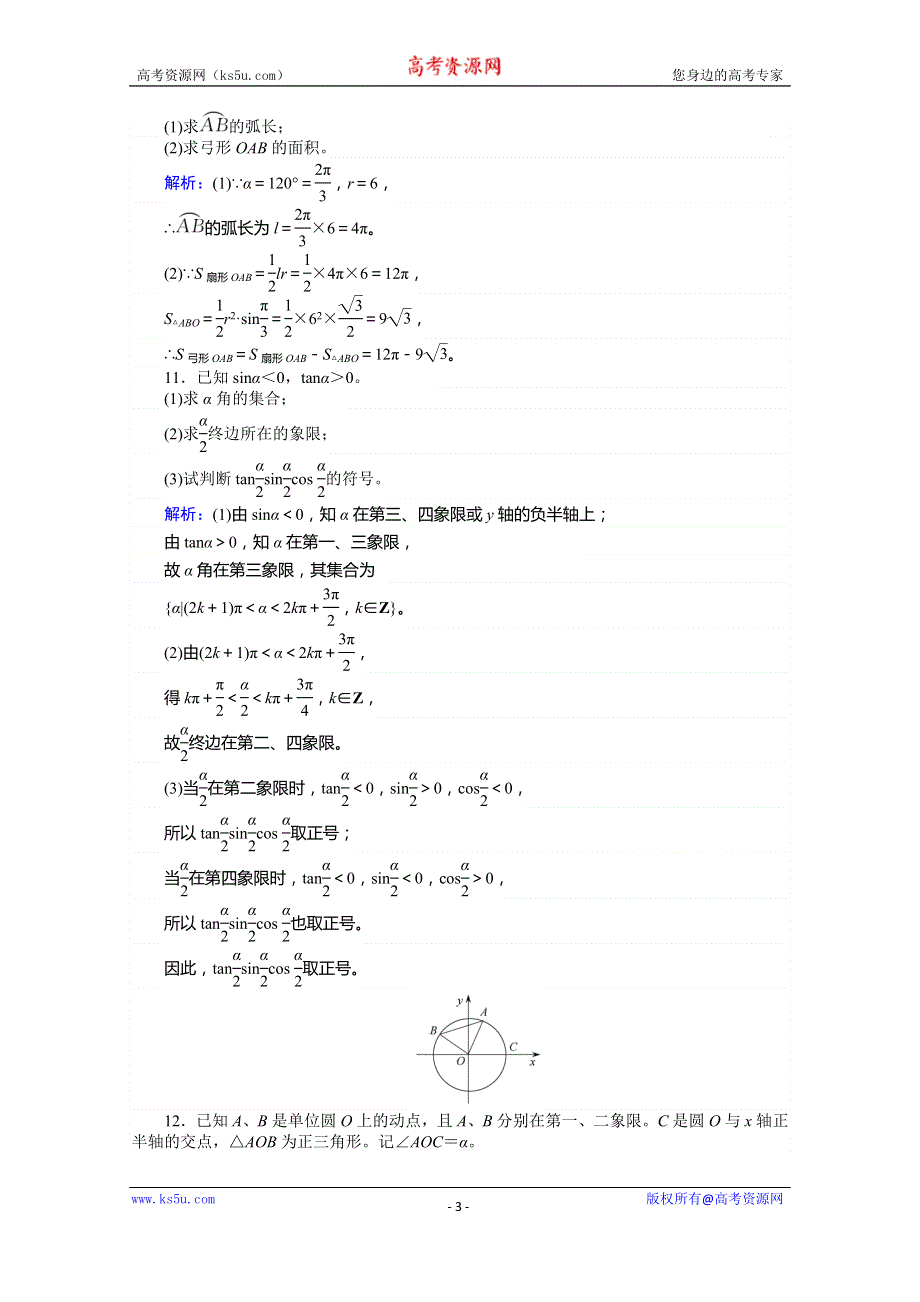 高考资源网（ks5u.com）
高考资源网
您身边的高考专家
(1)求AB的弧长；
(2)求弓形 OAB 的面积。
解析：(1)∵α＝120°＝2π/3，r＝6，
∴AB的弧长为 l＝2π/3×6＝4π。
(2)∵S 扇形 OAB＝1/2lr＝1/2×4π×6＝12π，
S△ABO＝1/2r²·sinπ/3＝1/2×6²×√3/2＝9√3，
∴S 弓形 OAB＝S 扇形 OAB－S△ABO＝12π－9√3。
11．已知 sinα＜0，tanα＞0。
(1)求 α 角的集合；
(2)求α/2终边所在的象限；
(3)试判断 tanα/2sinα/2cos α/2的符号。
解析：(1)由 sinα＜0，知 α 在第三、四象限或 y 轴的负半轴上；
由 tanα＞0，知 α 在第一、三象限，
故 α 角在第三象限，其集合为
{α|(2k＋1)π＜α＜2kπ＋3π/2，k∈Z}。
(2)由(2k＋1)π＜α＜2kπ＋3π/2，
得 kπ＋π/2＜α/2＜kπ＋3π/4，k∈Z，
故α/2终边在第二、四象限。
(3)当α/2在第二象限时，tanα/2＜0，sinα/2＞0，cosα/2＜0，
所以 tanα/2sinα/2cos α/2取正号；
当α/2在第四象限时，tanα/2＜0，sinα/2＜0，cosα/2＞0，
所以 tanα/2sinα/2cos α/2也取正号。
因此，tanα/2sinα/2cos α/2取正号。
y
A
B
C
O
x
12．已知 A、B 是单位圆 O 上的动点，且 A、B 分别在第一、二象限。C 是圆 O 与 x 轴正
半轴的交点，△AOB 为正三角形。记∠AOC＝α。
www.ks5u.com
- 3 -
版权所有@高考资源网